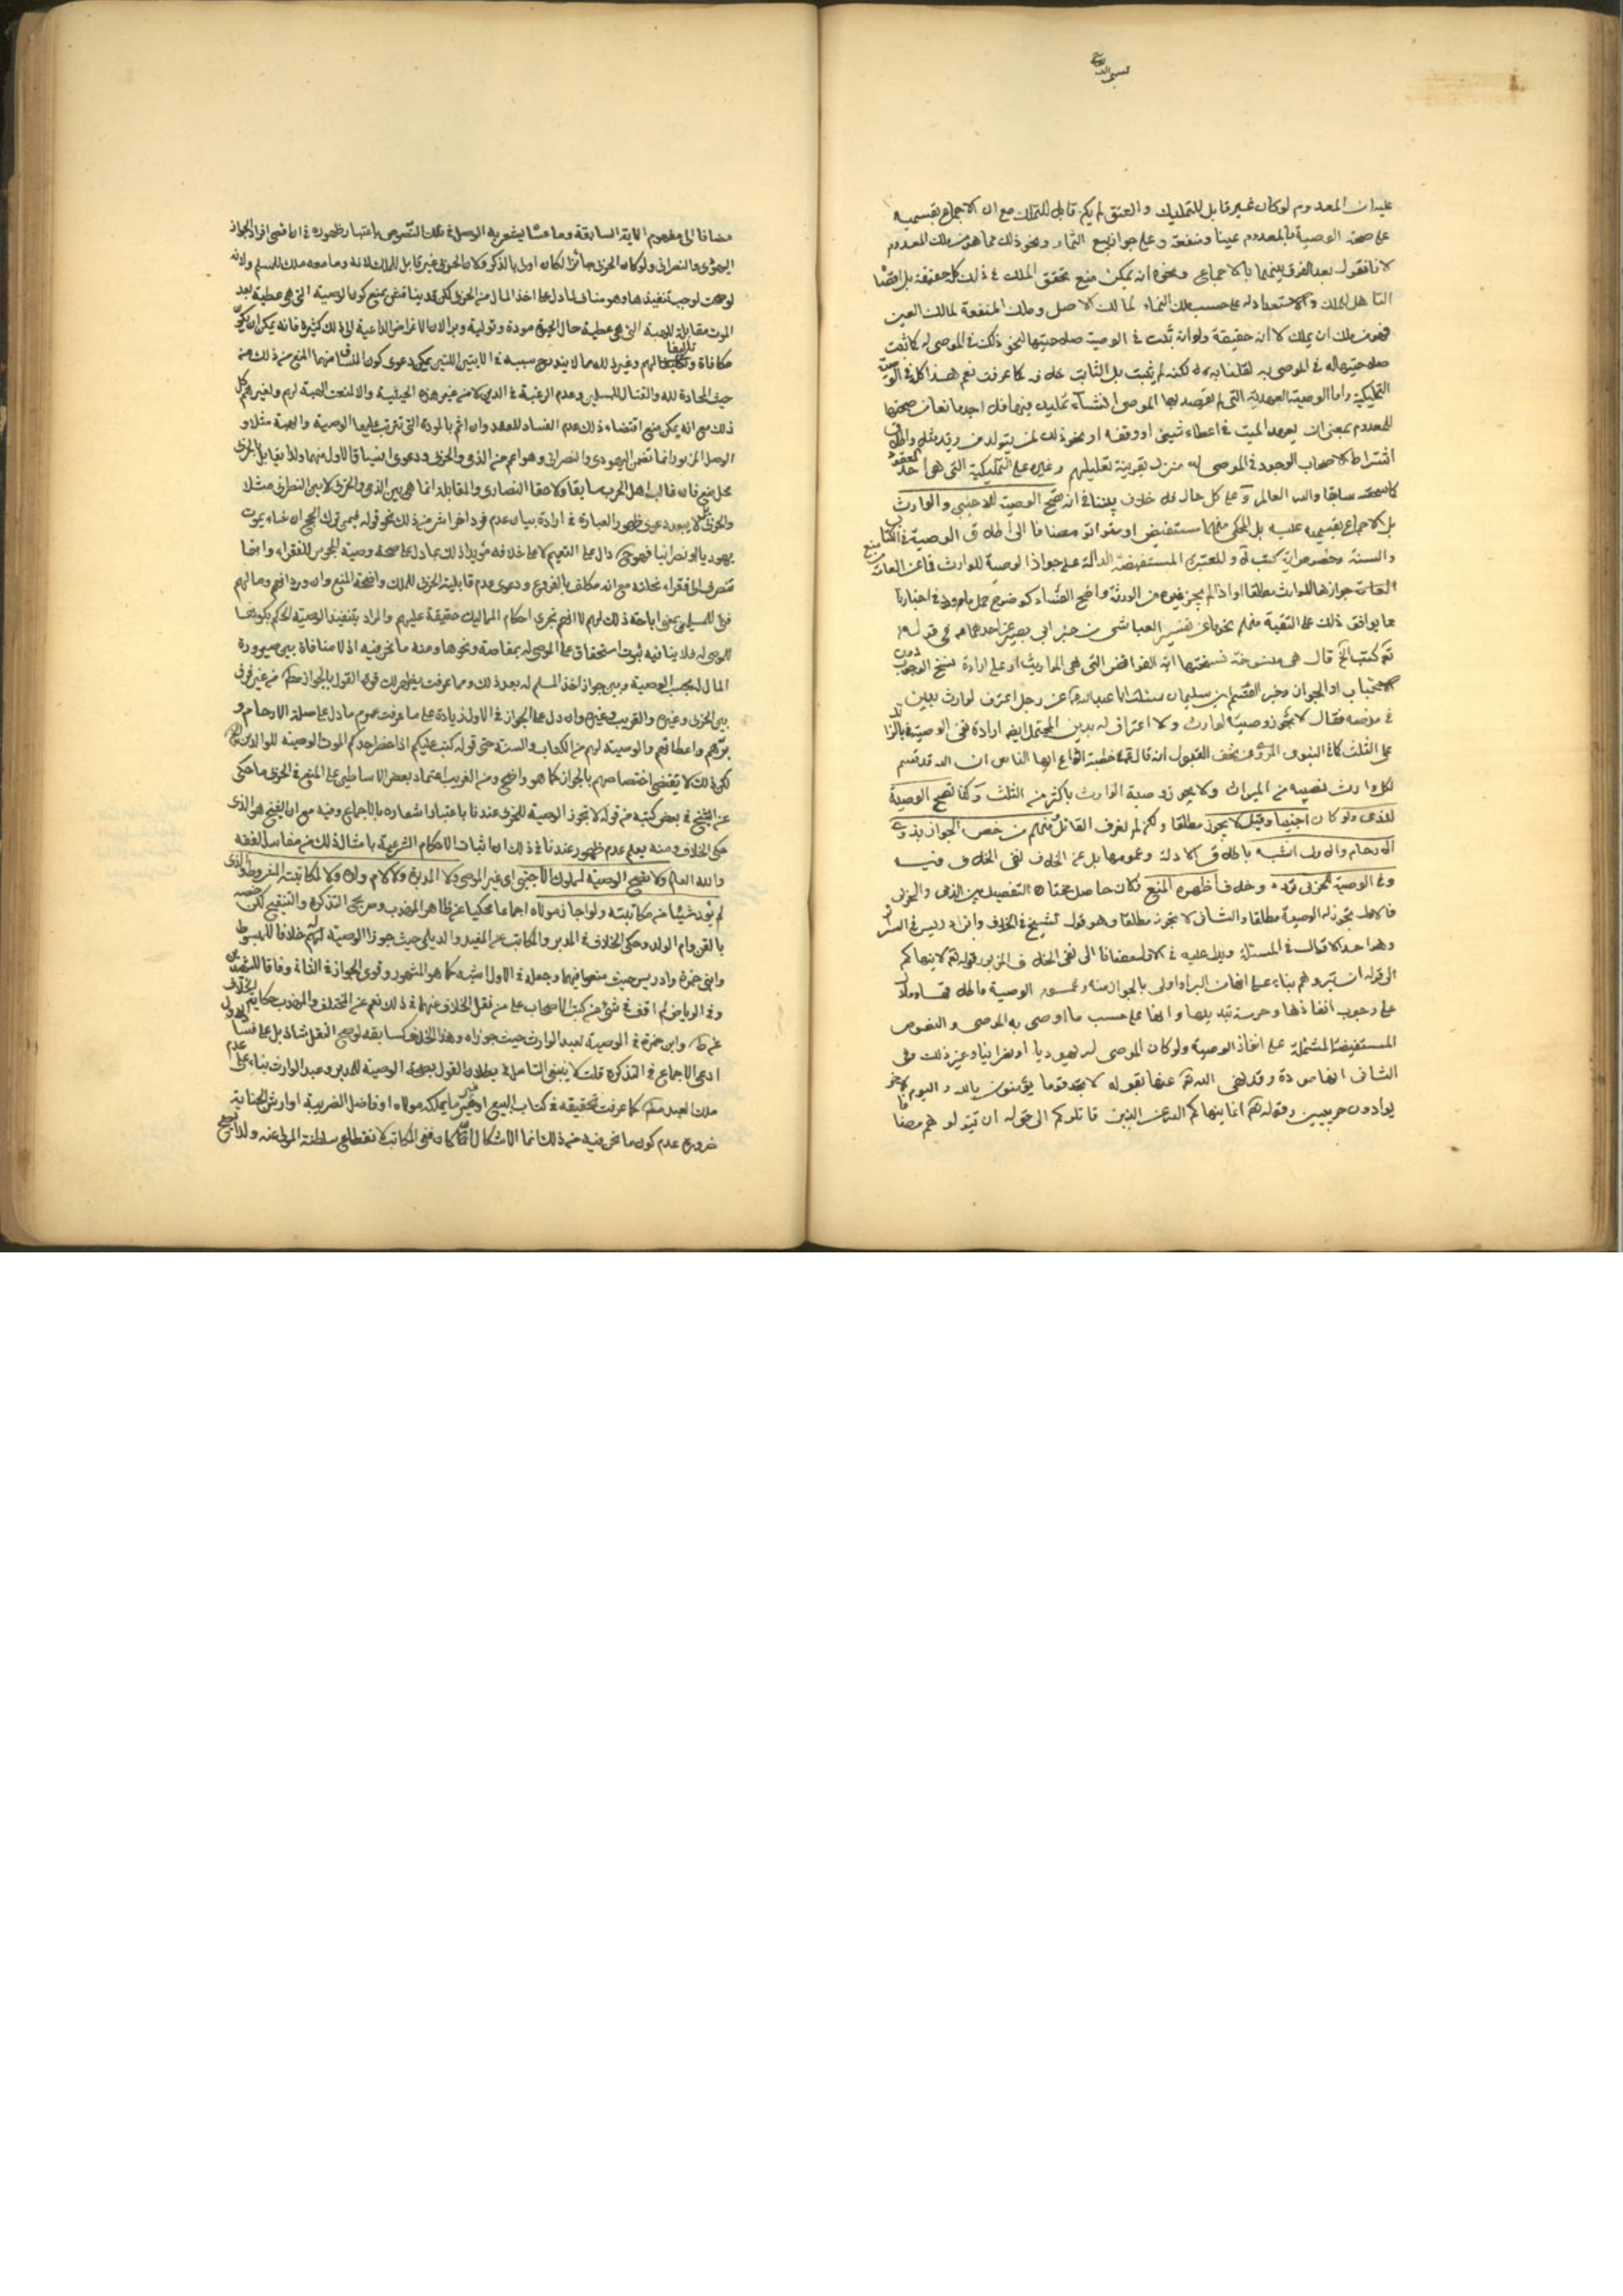 بسم الله
عليه ان المعدوم لو كان غير قابل للتمليك و العتق لم يكن قابلا للتملك مع ان الاجماع بقسميه
على صحة الوصية بالمعدوم عينا ومنفعة وعلى جواز بيع الثمار ونحو ذلك مما هو من ملك المعدوم
لانا نقول بعد الفرق بينهما بالاجماع ونحوه انه يمكن منع تحقق الملك في ذلك كله حقيقة بل اقصا
التاهل للملك والاستعداد له على حسب ملك النماء لمالك الاصل وملك المنفعة لمالك العين
فهو ملك ان يملك لا انه حقيقة ولو انه ثبت في الوصية صلاحيتها لنحو ذلك في الموصى له كما ثبت
صلاحيتها له في الموصى به لقلنا به لكنه لم يثبت بل الثابت خلافه كما عرفت نعم هذا كله في الوصية
التمليكية واما الوصية العهدية التي لم يقصد بها الموصى انشاء تمليك
للمعدوم بمعنى ان يعهد الميت في اعطاء شيئ او وقفه او نحو ذلك لمن يتولد من زيد مثلا واطلاق
اشتراط الاصحاب الوجود في الموصى له منزل بقرينة تعليلهم وغيره على التمليكية التي هي احد العقود
كما سمعته سابقا والله العالم وعلى كل حال فلا خلاف بيننا في انه تصح الوصية للاجنبي والوارث
بل الاجماع بقسميه عليه بل المحكي منهما مستفيض او متواتر مضافا الى اطلاق الوصية في الكتاب
والسنة وخصوص اية كتب و المعتبرة المستفيضة الدالة على جواز الوصية للوارث فما عن العامة من منع
جوازها للوارث مطلقا او اذا لم يجز غيره من الورثة واضح الفساد كوضوح حمل ما ورد في اخبارنا
مما يوافق ذلك على التقية منهم نحو ما عن تفسير العياشى من خبر ابي بصير عن احدهما في قوله
تعالى كتب الخ قال هي منسوخة نسختها اية الفرائض التى هى المواريث او على ارادة نسخ الوجوب دون
الاستحباب او الجواز وخبر القسم بن سليمان سئلت ابا عبد الله عن رجل اعترف لوارث بدين
في مرضه فقال لا تجوز وصيته لوارث ولا اعتراف له بدين المحتمل ايضا ارادة نفي الوصية بالزائد
على الثلث كالنبوى المروى عن تحف العقول انه قال في خطبة الوداع ايها الناس ان الله قد قسم
لكل وارث نصيبه من الميراث ولا يجوز وصية الوارث باكثر من الثلث وكذا تصح الوصية
للذمي ولو كان اجنبيا وقيل لا يجوز مطلقا ولكن لم نعرف القائل منهم من خص الجواز بذوي
الارحام والاول اشبه باطلاق الادلة وعمومها بل عن الخلاف نفى الخلاف فيه
وفي الوصية للحربى تردد وخلاف اظهره المنع فكان حاصل مختاره التفصيل بين الذمى والحربى
فالاول تجوز له الوصية مطلقا والثاني لا تجوز مطلقا وهو قول الشيخ في الخلاف وابن ادريس في السرائر
وهو احد الاقوال في المسئلة ويدل عليه في الاول مضافا الى نفى الخلاف المزبور قوله تعالى لا ينهاكم
الى قوله ان تبروهم بناء على اولى بالجواز منه وعموم الوصية
على وجوب انفاذها وحرمة تبديلها وانها على حسب ما اوصى به الموصى والنصوص
المستفيضة المشتملة على انفاذ الوصية ولو كان الموصى له يهوديا او نصرانيا وغير ذلك وعلى
الثاني انها موادة وقد نهى الله تعالى عنها بقوله لا تجد قوما يؤمنون بالله و اليوم الاخر
يوادون وقوله تعالى انما ينهاكم الله عن الذين قاتلوكم الى قوله ان تولوهم مضافا
مضافا الى مفهوم الاية السابقة وما عساه يشعر به الوصل في تلك النصوص باعتبار ظهوره في ان اقصى افراد الجواز
اليهودى والنصرانى ولو كان الحربى جائزا لكان اولى بالذكر ولان الحربى غير قابل للملك لانه وما معه ملك للمسلم ولانه
لو صحت لوجب تنفيذها وهو مناف لما دل على اخذ المال من الحربى لكن قد يناقش بمنع كون الوصية التي هي عطية بعد
الموت مقابلة للهبة التي هي عطية حال الحيوة مودة وتولية وبر الان الاغراض الداعية الى ذلك كثيرة فانه يمكن ان يكون
مكافاة وتاليفا لهم وغير ذلك مما لا يندرج سببه في الايتين اللتين يمكن دعوى كون المنساق منهما المنع من ذلك من
حيث المحادة لله والقتال للمسلمين وعدم الرغبة في الدين لا من غير هذه الحيثية والا لمنعت الهبة لهم ولغيرهم كل
ذلك مع انه يمكن منع اقتضاء ذلك عدم الفساد للعقد وان اثم بالمودة التي تترتب عليها الوصية والهبة مثلا و
الوصل المزبور انما تضمن اليهودى والنصراني وهو اعم من الذمى والحربى ودعوى انسياق الاول منهما ولذا يقابل بالحربى
محل منع فان غالب اهل الحرب سابقا ولاحقا النصارى والمقابلة انما هي بين الذمي والحربى لا بين النصرانى مثلا
والحربى بل لا يبعد دعوى ظهور العبارة في ارادة بيان عدم فرد اخر اشر من ذلك نحو قوله فيمن ترك الحج ان شاء يموت
يهوديا او نصرانيا فهو دال على التعميم لا على خلافه مؤيدا ذلك بما دل على صحة وصية المجوس للفقراء وانها
تصرف الى فقراء نحلته مع انه مكلف بالفروع ودعوى عدم قابلية الحربى للملك واضحة المنع وان ورد انهم ومالهم
فئ للمسلمين بمعنى اباحة ذلك لهم لا انهم تجرى احكام المماليك حقيقة عليهم والمراد بتنفيذ الوصية الحكم بكونها
للموصى له فلا ينافيه ثبوت استحقاق على الموصى له بمقاصة ونحوها ومنه ما نحن فيه اذ لا منافاة بين صيرورة
المال له بحسب الوصية وبين جواز اخذ المسلم له بعد ذلك ومما عرفت يظهر لك قوة القول بالجواز مطلقا من غير فرق
بين الحربى وغيره والقريب وغيره وان دل على الجواز في الاول زيادة على ما عرفت عموم ما دل على صلة الارحام و
برهم واعطائهم والوصية لهم من الكتاب والسنة حتى قوله كتب عليكم اذا حضر احدكم الموت الوصية للوالدين الخ
لكن ذلك لا يقتضى اختصاصهم بالجواز كما هو واضح ومن الغريب اعتماد بعض الاساطين على المنع في الحربى ما حكى
عن الشيخ في بعض كتبه من قوله لا تجوز الوصية للحربى عندنا باعتبار اشعاره بالاجماع وفيه مع ان الشيخ هو الذى
حكى الخلاف ومنه يعلم عدم ظهور عندنا في ذلك ان اثبات الاحكام الشرعية بامثال ذلك من مفاسد الفقه
والله العالم ولا تصح الوصية لمملوك الاجنبي اي غير الموصى ولا المدبره ولا لام ولده ولا لمكاتبته المشروط او الذى
لم يؤد شيئا من مكاتبته ولو اجاز مولاه اجماعا محكيا عن ظاهر المهذب وصريحى التذكرة والتنقيح لكن خصه
بالقن وام الولد وحكى الخلاف في المدبر والمكاتب عن المفيد والديلمى حيث جوزا الوصية لهم خلافا للمبسوط
وابنى حمزة وادريس حيث منعوا فيهما وجعله في الاول اشبه كما هو المشهور وقوى الجواز في الثانى وفاقا للشهيدين
وفي الرياض لم اقف في شئ من كتب الاصحاب على من نقل الخلاف عنهما في ذلك نعم عن المختلف والمهذب حكاية الخلاف
عن وابن حمزة في الوصية لعبد الوارث حيث جوزاه وهذا الخلاف كسابقه لو صح النقل شاذ بل على فساد الاول
ادعى الاجماع في التذكرة قلت لا ينبغى التامل في بطلان القول بصحة الوصية للمدبر وعبد الوارث بناء على عدم
ملك العبد مطلقا كما عرفت تحقيقه في كتاب البيع او غير ما يملكه مولاه او فاضل الضريبة او ارش الجناية
ضرورة عدم كون ما نحن فيه من ذلك انما الاشكال ان كان ففي المكاتب لانقطاع سلطنة المولى عنه ولذا